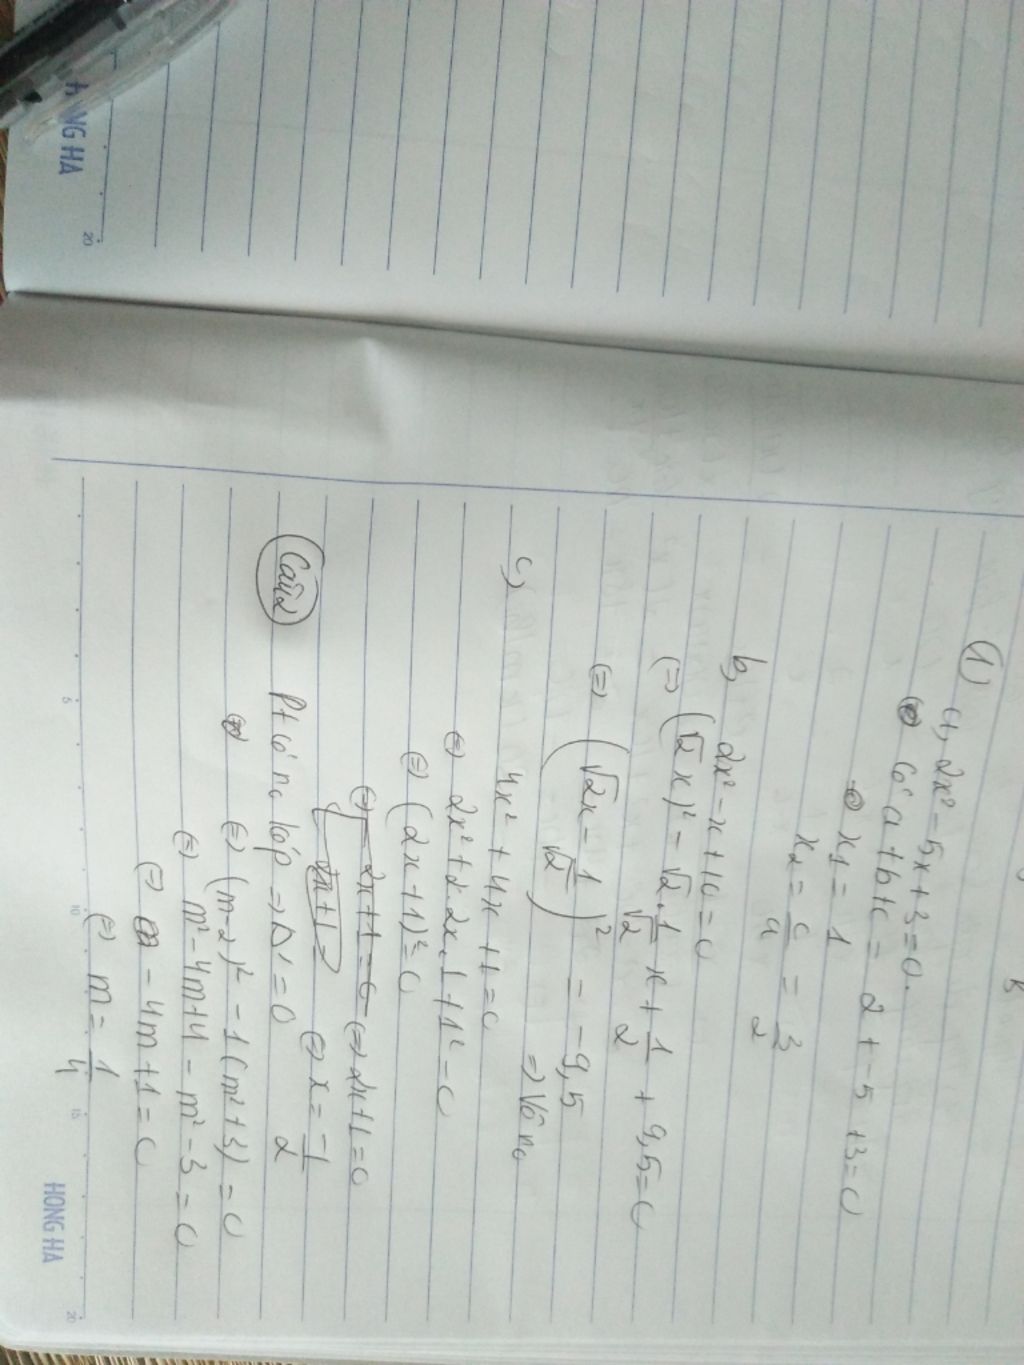 1) a, 2x² - 5x + 3 = 0.
Có a + b + c = 2 + -5 + 3 = 0
x₁ = 1
x₂ = c/a = 3/2
b, 2x² - x + 10 = 0
⇔ (√2x)² - √2.1/√2 x + 1/2 + 9,5 = 0
⇔ (√2x - 1/√2)² = -9,5
⇒ Vô n₀
c, 4x² + 4x + 1 = 0
⇔ 2x² + 2.2x.1 + 1² = 0
⇔ (2x + 1)² = 0
⇔ 2x + 1 = 0 ⇔ 2x + 1 = 0
⇔ x = -1/2
Câu 2 Pt có n₀ kép ⇒ Δ' = 0
⇔ (m - 2)² - 1(m² + 3) = 0
⇔ m² - 4m + 4 - m² - 3 = 0
⇔ - 4m + 1 = 0
⇔ m = 1/4
HONG HA
5 10 15 20
NG HA
20